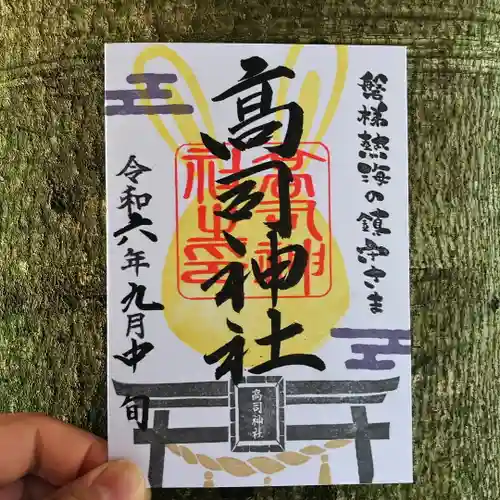 磐梯熱海の鎮守さま
高司神社
令和六年九月中旬
高司神社